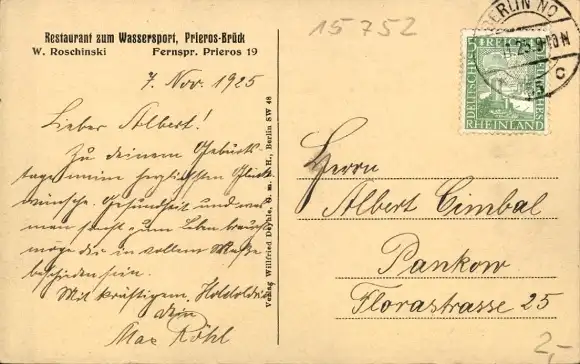 Restaurant zum Wassersport, Prieros-Brück
W. Roschinski Fernspr. Prieros 19
7. Nov. 1925
Lieber Albert!
Zu deinem Geburts-
tage meine herzlichsten Glück-
wünsche. Gesundheit und was
man sonst zum Leben braucht
möge dir in vollem Maße
beschieden sein.
Mit kräftigem
dein
Max Röhl
Verlag Willfried Deyhle, G. m. b. H., Berlin SW 48
15752
BERLIN NO
DEUTSCHES REICH
5
RHEINLAND
Herrn
Albert Cimbal
Pankow
Florastrasse 25
2,-